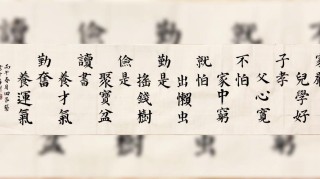 家福
兒學好
子孝
父心寬
不怕
家中窮
就怕
出懶虫
勤是
搖錢樹
儉是
聚寶盆
讀書
養才氣
勤奮
養運氣